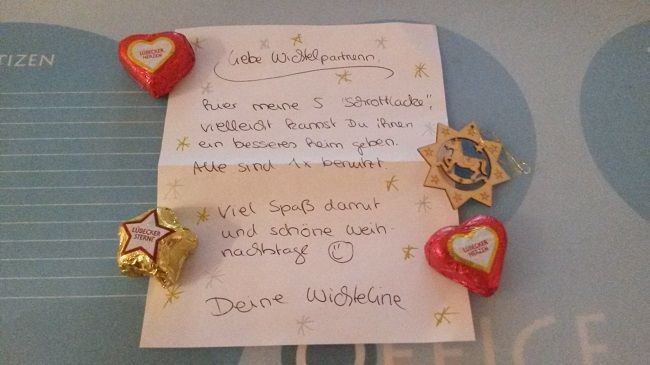 TIZEN
LÜBECKER
HERZEN
Liebe Wichtelpartnerin,
hier meine 5 "Schrottlacke",
vielleicht kannst Du ihnen
ein besseres Heim geben.
Alle sind 1x benutzt.
Viel Spaß damit
und schöne Weih-
nachtstage ☺
Deine Wichteline
LÜBECKER
STERNE
LÜBECKER
HERZEN
OFFICE